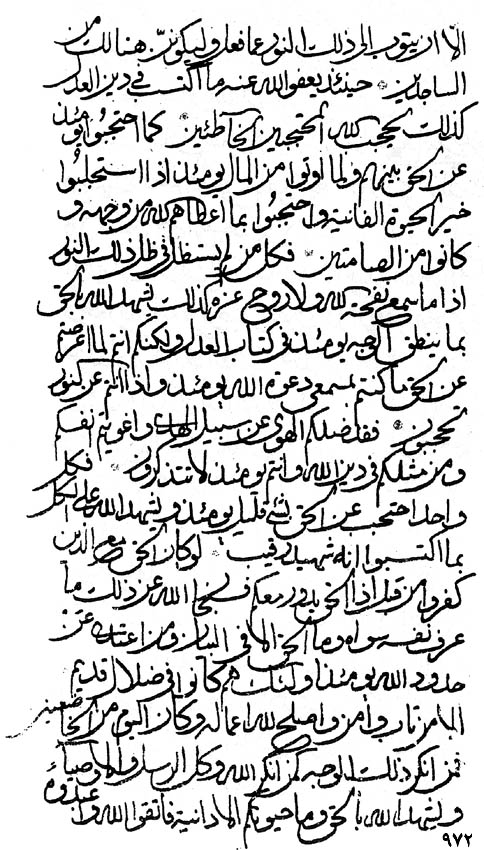 الا ان يتوب الى ذلك النور عما فعل وليكونن هنالك من
الساجدين * حينئذ يعفوا الله عنه ما اكتسب في دين العدل
كذلك يحجب الله المحتجبين الخاطئين * كما احتجبوا يومئذ
عن الحق بينهم ولما اوتوا من المال يومئذ اذا استجلبوا
خير الحيوة الفانية واحتجبوا بما اعطاهم الله من وجهه و
كانوا من الصامتين * فكل من لم يستظل في ظل ذلك النور
اذا ما سمع نفحة الله ولا روح عزه كذلك يشهد الله بالحق
بما ينطق الوجه يومئذ في كتاب العدل ولكنكم انتم لما اعرضتم
عن الحق ما كنتم لمسمعى دعوة الله يومئذ واذا انتم عن النور
تحجبون * فقد ضلكم الهوى عن سبيل الهدى واغويتم نفسكم
ومن مثلكم في دين الله وانتم يومئذ لا تتذكرون * فكل
واحد احتجب عن الحق بشئ قليل يومئذ ويشهد الله على الكل
بما اكتسبوا انه شهيد رقيب * لو كان الحق مع الذين
كفروا من قبل اذا الحق يدور معكم فسبحان الله عن ذلك ما
عرف نفسه سواه وما الحق الا في البيان ومن اعتدى عن
حدود الله يومئذ اولئك هم كانوا في ضلال قديم
الا من تاب وامن واصلح لله اعماله وكان اليوم من الخاضعين
فمن انكر ذلك الوجه كمن انكر الله وكل الرسل والاوصياء
ويشهد الله بالحق وما حيوتكم الا دانية فاتقوا الله واعبدوه
٩٧٢